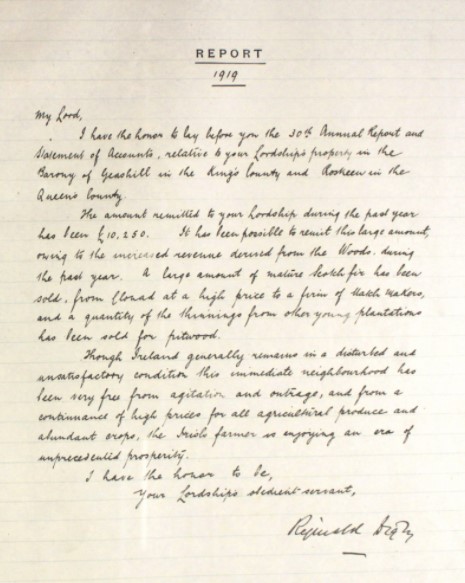 REPORT
1919
My Lord,
I have the honor to lay before you the 30th Annual Report and
Statement of Accounts, relative to your Lordship's property in the
Barony of Geashill in the King's County and Roskeen in the
Queen's County.
The amount remitted to your Lordship during the past year
has been £10,250. It has been possible to remit this large amount,
owing to the increased revenue derived from the Woods, during
the past year. A large amount of mature Scotch fir has been
sold, from Clonad at a high price to a firm of Match Makers,
and a quantity of the thinnings from other young plantations
has been sold for pitwood.
Though Ireland generally remains in a disturbed and
unsatisfactory condition this immediate neighbourhood has
been very free from agitation and outrage, and from a
continuance of high prices for all agricultural produce and
abundant crops, the Irish farmer is enjoying an era of
unprecedented prosperity.
I have the honor to be,
Your Lordship's obedient servant,
Reginald Digby